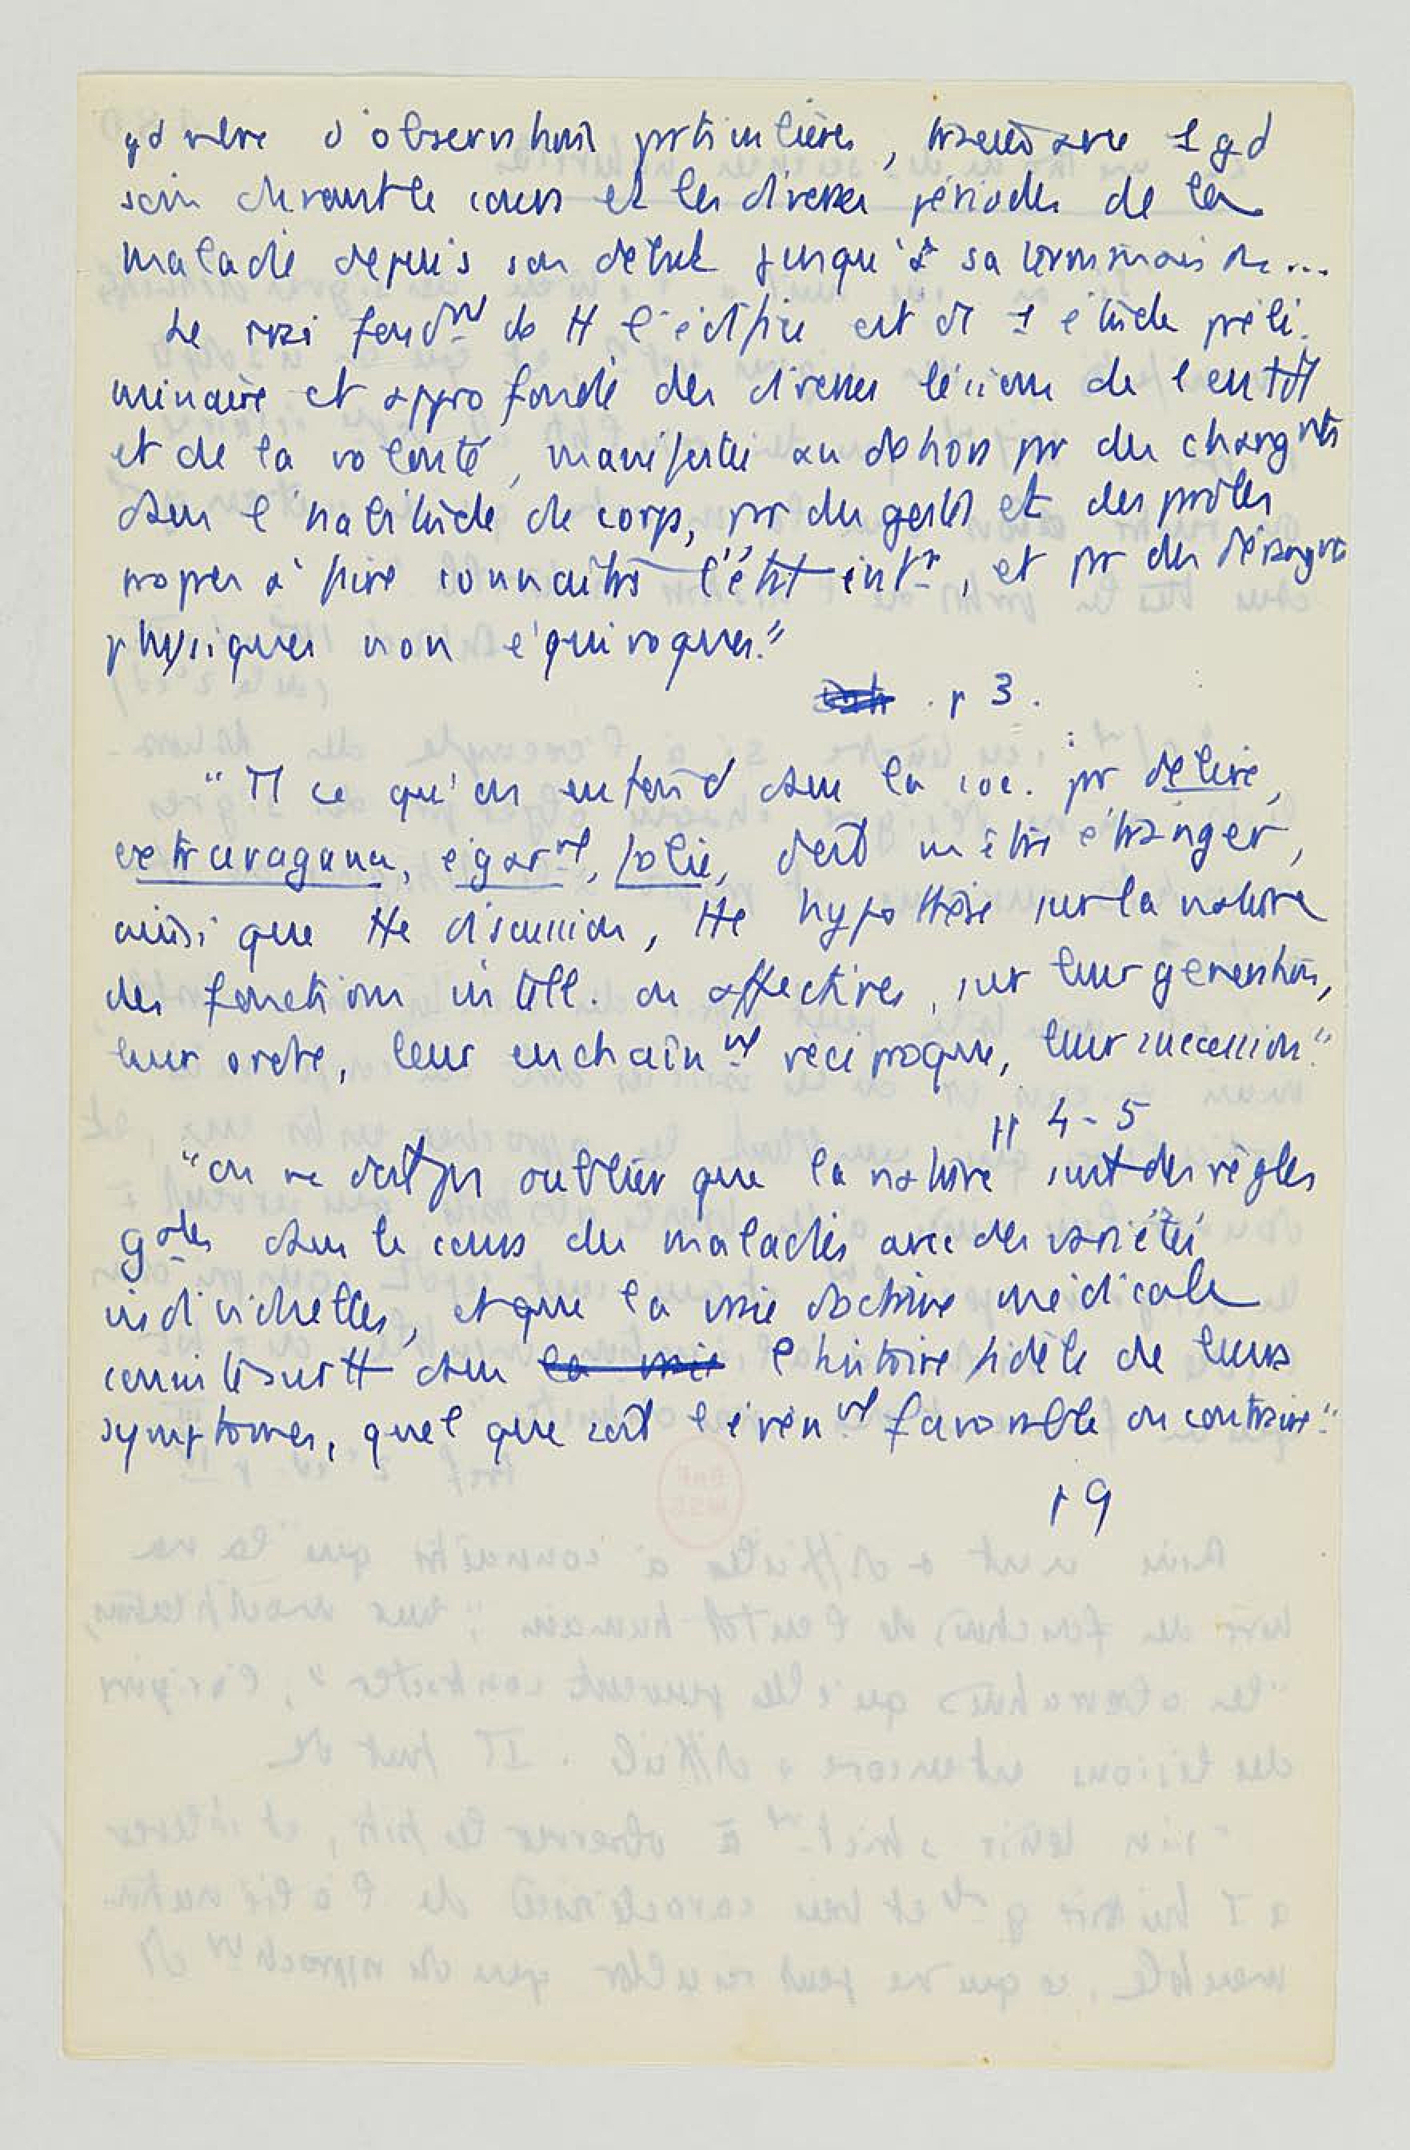 gd nbre d'observations particulières, tracées avec 1 gd
soin durant le cours et les diverses périodes de la
maladie depuis son début jusqu'à sa terminaison...
Le vrai fondmt de tt l'édifice est ds 1 étude préli-
minaire et approfondie des diverses lésions de l'entdt
et de la volonté, manifestées au dehors pr des changmts
dans l'habitude du corps, pr des gestes et des paroles
propres à faire connaître l'état intr, et pr des dérangmts
physiques non équivoques."
p 3.
"Tt ce qu'on entend dans la soc. pr délire,
extravagance, égarmt, folie, doit m'être étranger,
ainsi que tte discussion, tte hypothèse sur la nature
des fonctions intell. ou affectives, sur leur génération,
leur ordre, leur enchaînmt réciproque, leur succession."
pp 4-5
"on ne doit pas oublier que la nature suit des règles
gales dans le cours des maladies avec des variétés
individuelles, et que la vraie doctrine médicale
consiste surtt dans la vraie l'histoire fidèle de leurs
symptomes, quel que soit l'évènmt favorable ou contraire."
p 9